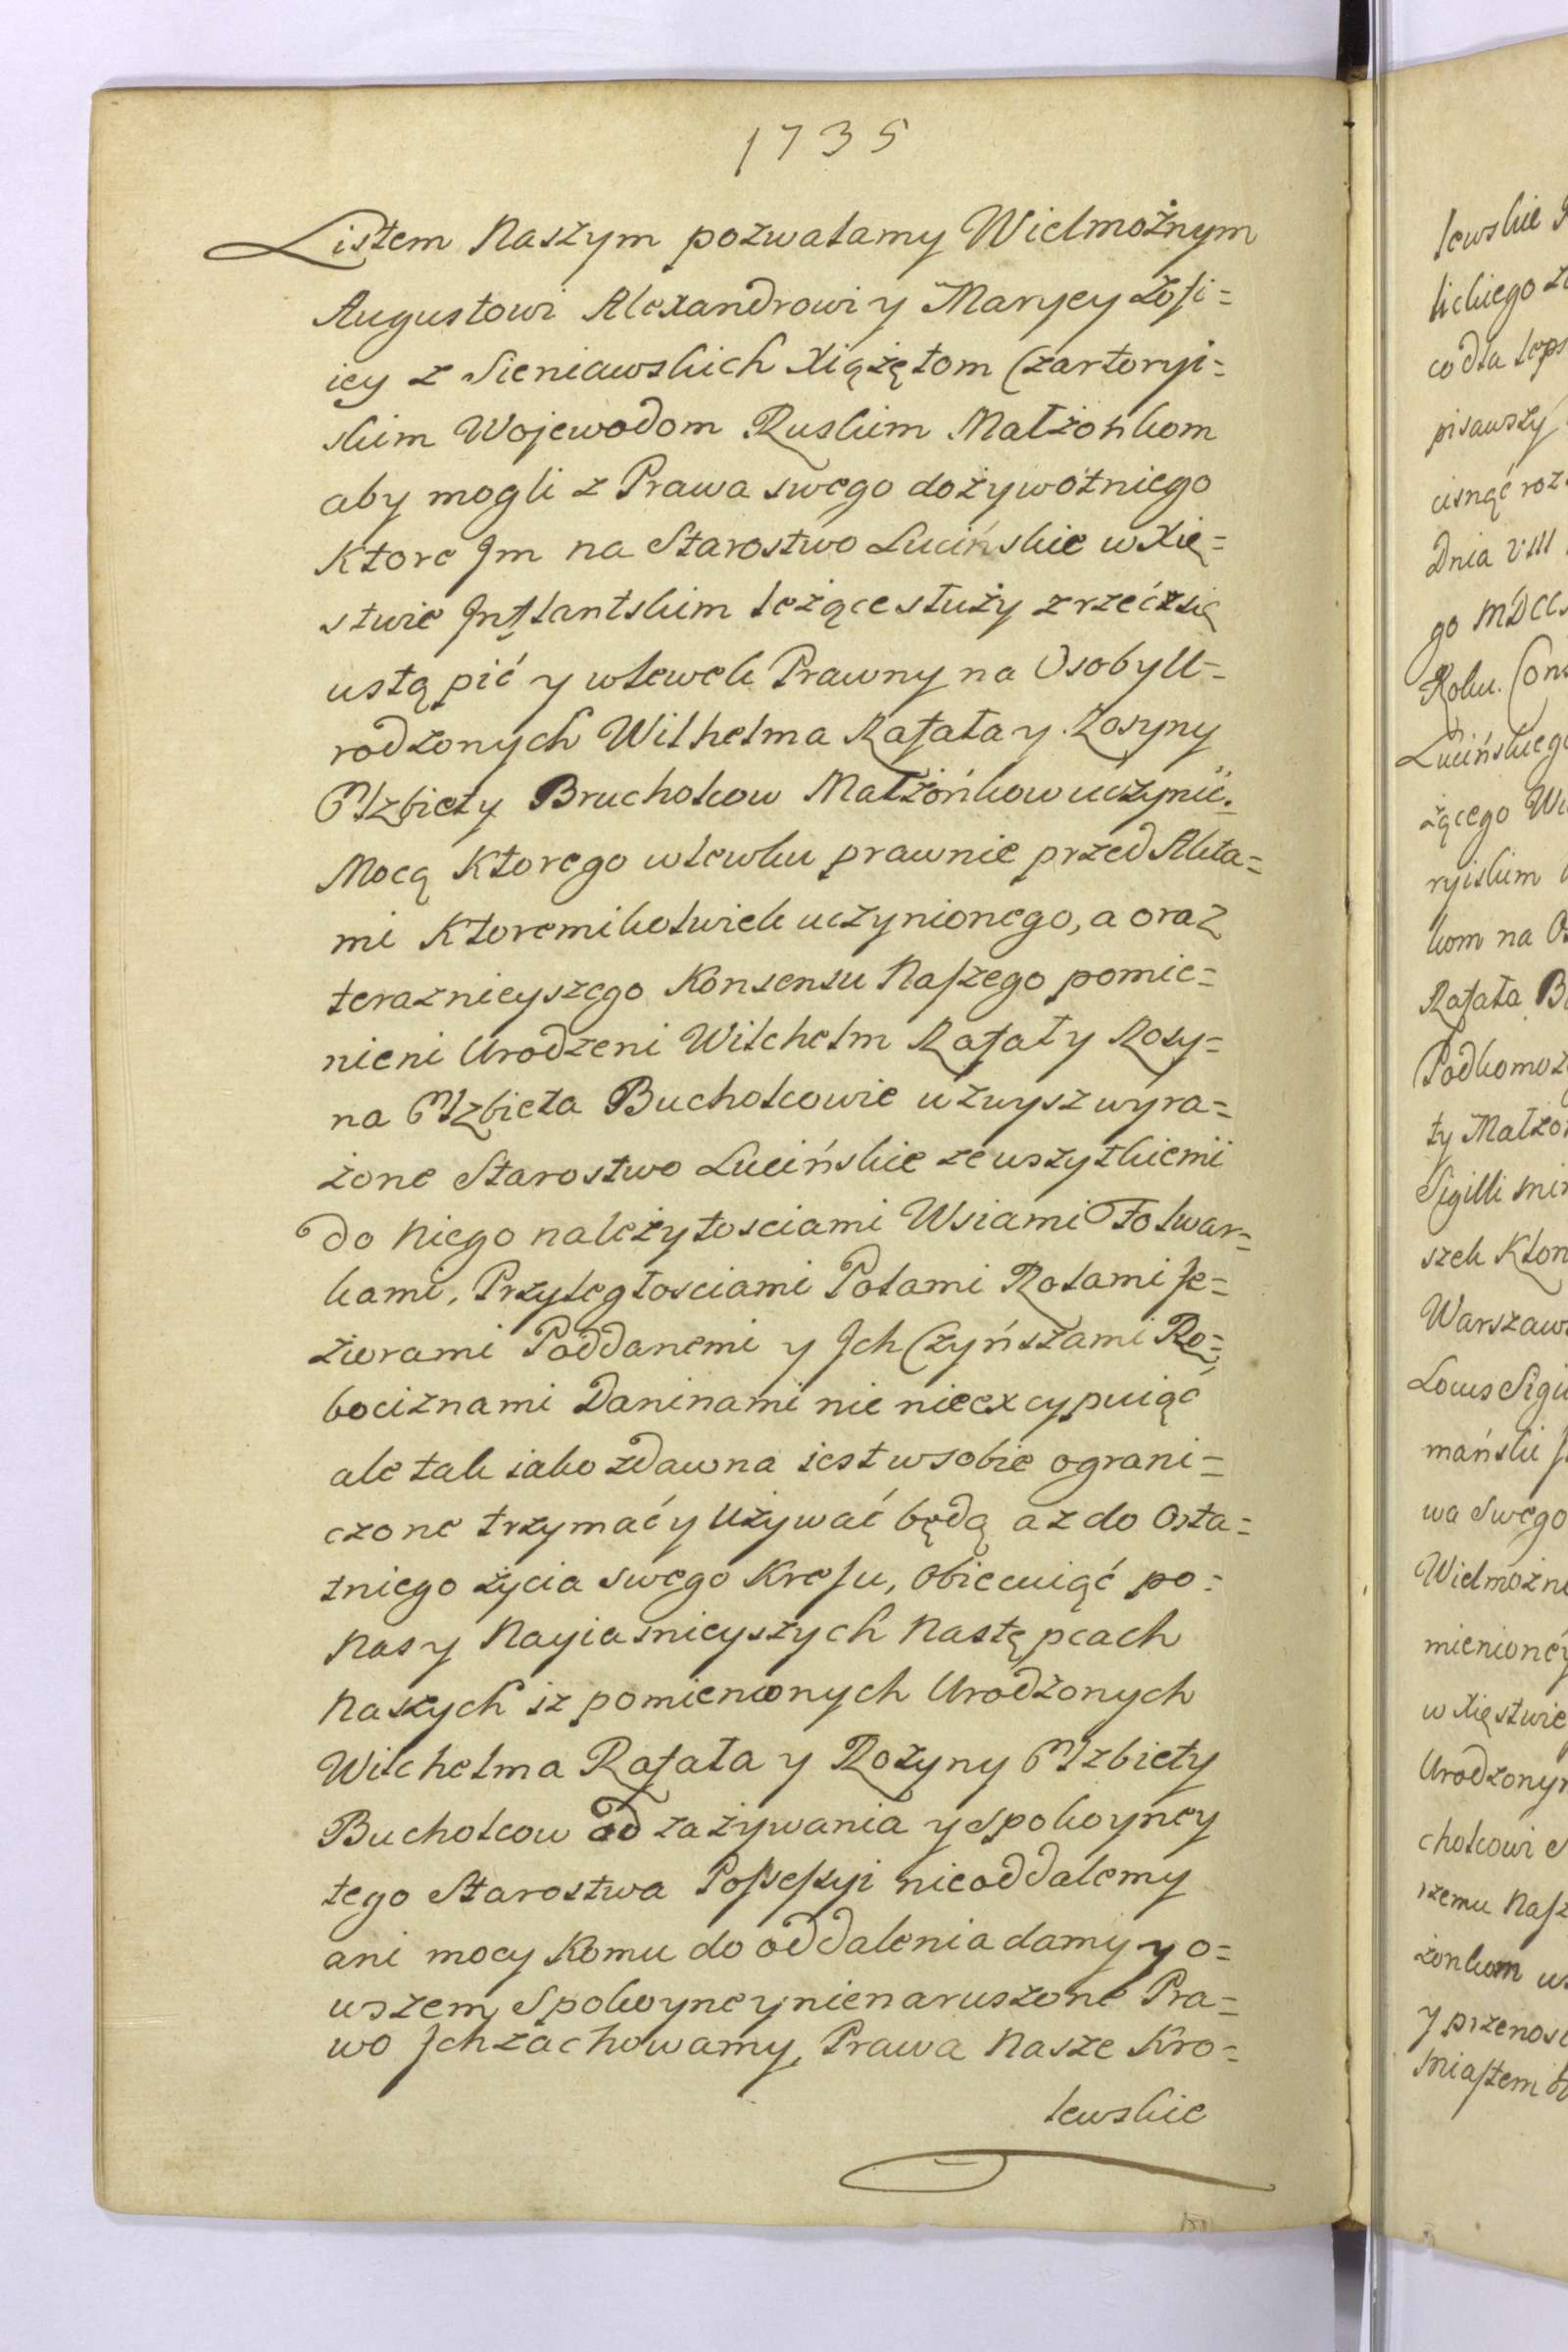 1735
Listem Naszym pozwalamy Wielmożnym
Augustowi Alexandrowi y Maryey Zofi=
iey z Sieniawskich Xiążętom Czartoryi=
skim Wojewodom Ruskim Małżonkom
aby mogli z Prawa swego dożywotniego
Ktore Jm na Starostwo Lucińskie w Xię=
stwie Inflantskim leżące służy zrzec się
ustąpić y wlewek Prawny na Osoby U=
rodzonych Wilhelma Rafała y Rozyny
Elzbiety Brucholcow Małżonkow uczynić.
Mocą Ktorego wlewku prawnie przed Akta=
mi Ktoremikolwiek uczynionego, a oraz
teraznieyszego Konsensu Naszego pomie=
nieni Urodzeni Wilchelm Rafał y Rozy=
na Elzbieta Bucholcowie wzwysz wyra=
żone Starostwo Lucińskie ze wszytkiemi
do Niego należytosciami Wsiami Folwar=
kami, Przyległosciami Polami Rolami Je=
ziorami Poddanemi y Jch Czyńszami Ro=
bociznami Daninami nic nieexcypuiąc
ale tak iako zdawna iest w sobie ograni=
czone trzymać y Używać będą az do Osta=
tniego życia swego Kresu, Obiecuiąć po=
Nas y Nayiasnieyszych Nastę pcach
Naszych iz pomienionych Urodzonych
Wilchelma Rafała y Rozyny Elzbiety
Bucholcow od zażywania y Spokoyney
tego Starostwa Possessyi nieoddalemy
ani mocy Komu do oddalenia damy y o=
wszem Spokoyney nienaruszone Pra=
wo Jch zachowamy, Prawa Nasze Kro=
lewskie
lewskie
lickiego
co dla leps
pisawszy
cisnąć roz
Dnia VIII
go MDCC
Roku. Cons
Lucińskiego
żącego Wi
ryiskim
kom na O
Rafała B
Podkomorz
ty Małżo
Sigilli min
szek Klon
Warszaw
Locus Sigi
mański
wa Swego
Wielmożn
mienioney
w Xięstwie
Urodzonym
cholcowi
szemu Nasz
żonkom
y przenos
Miastem